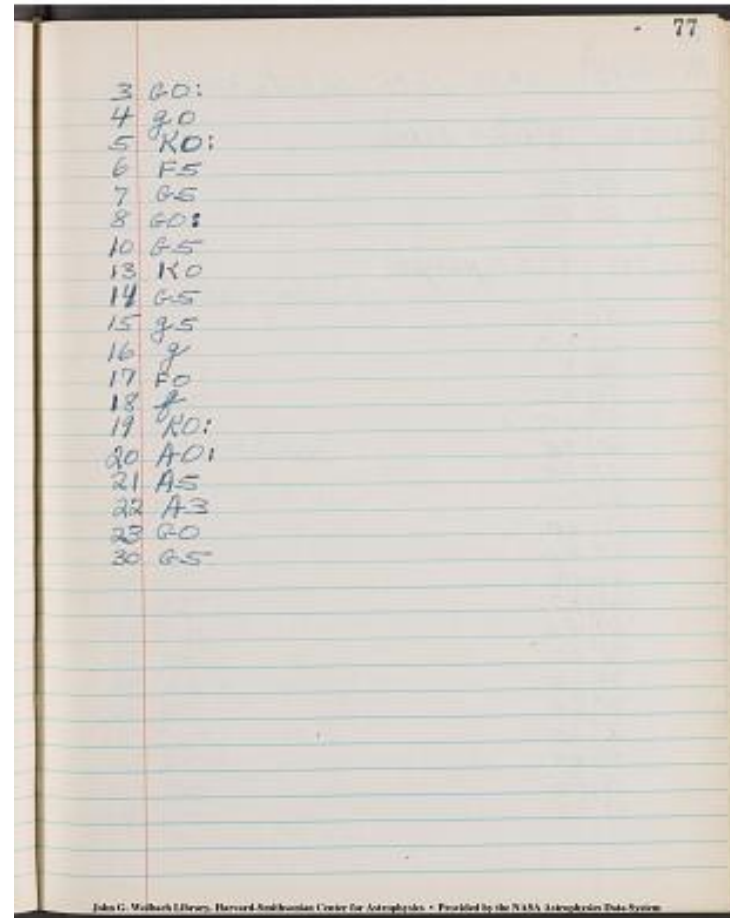 77
3 G0:
4 g0
5 K0:
6 F5
7 G5
8 G0:
10 G5
13 K0
14 G5
15 g5
16 g
17 F0
18 f
19 K0:
20 A0:
21 A5
22 A3
23 G0
30 G5
John G. Wolbach Library, Harvard-Smithsonian Center for Astrophysics • Provided by the NASA Astrophysics Data System